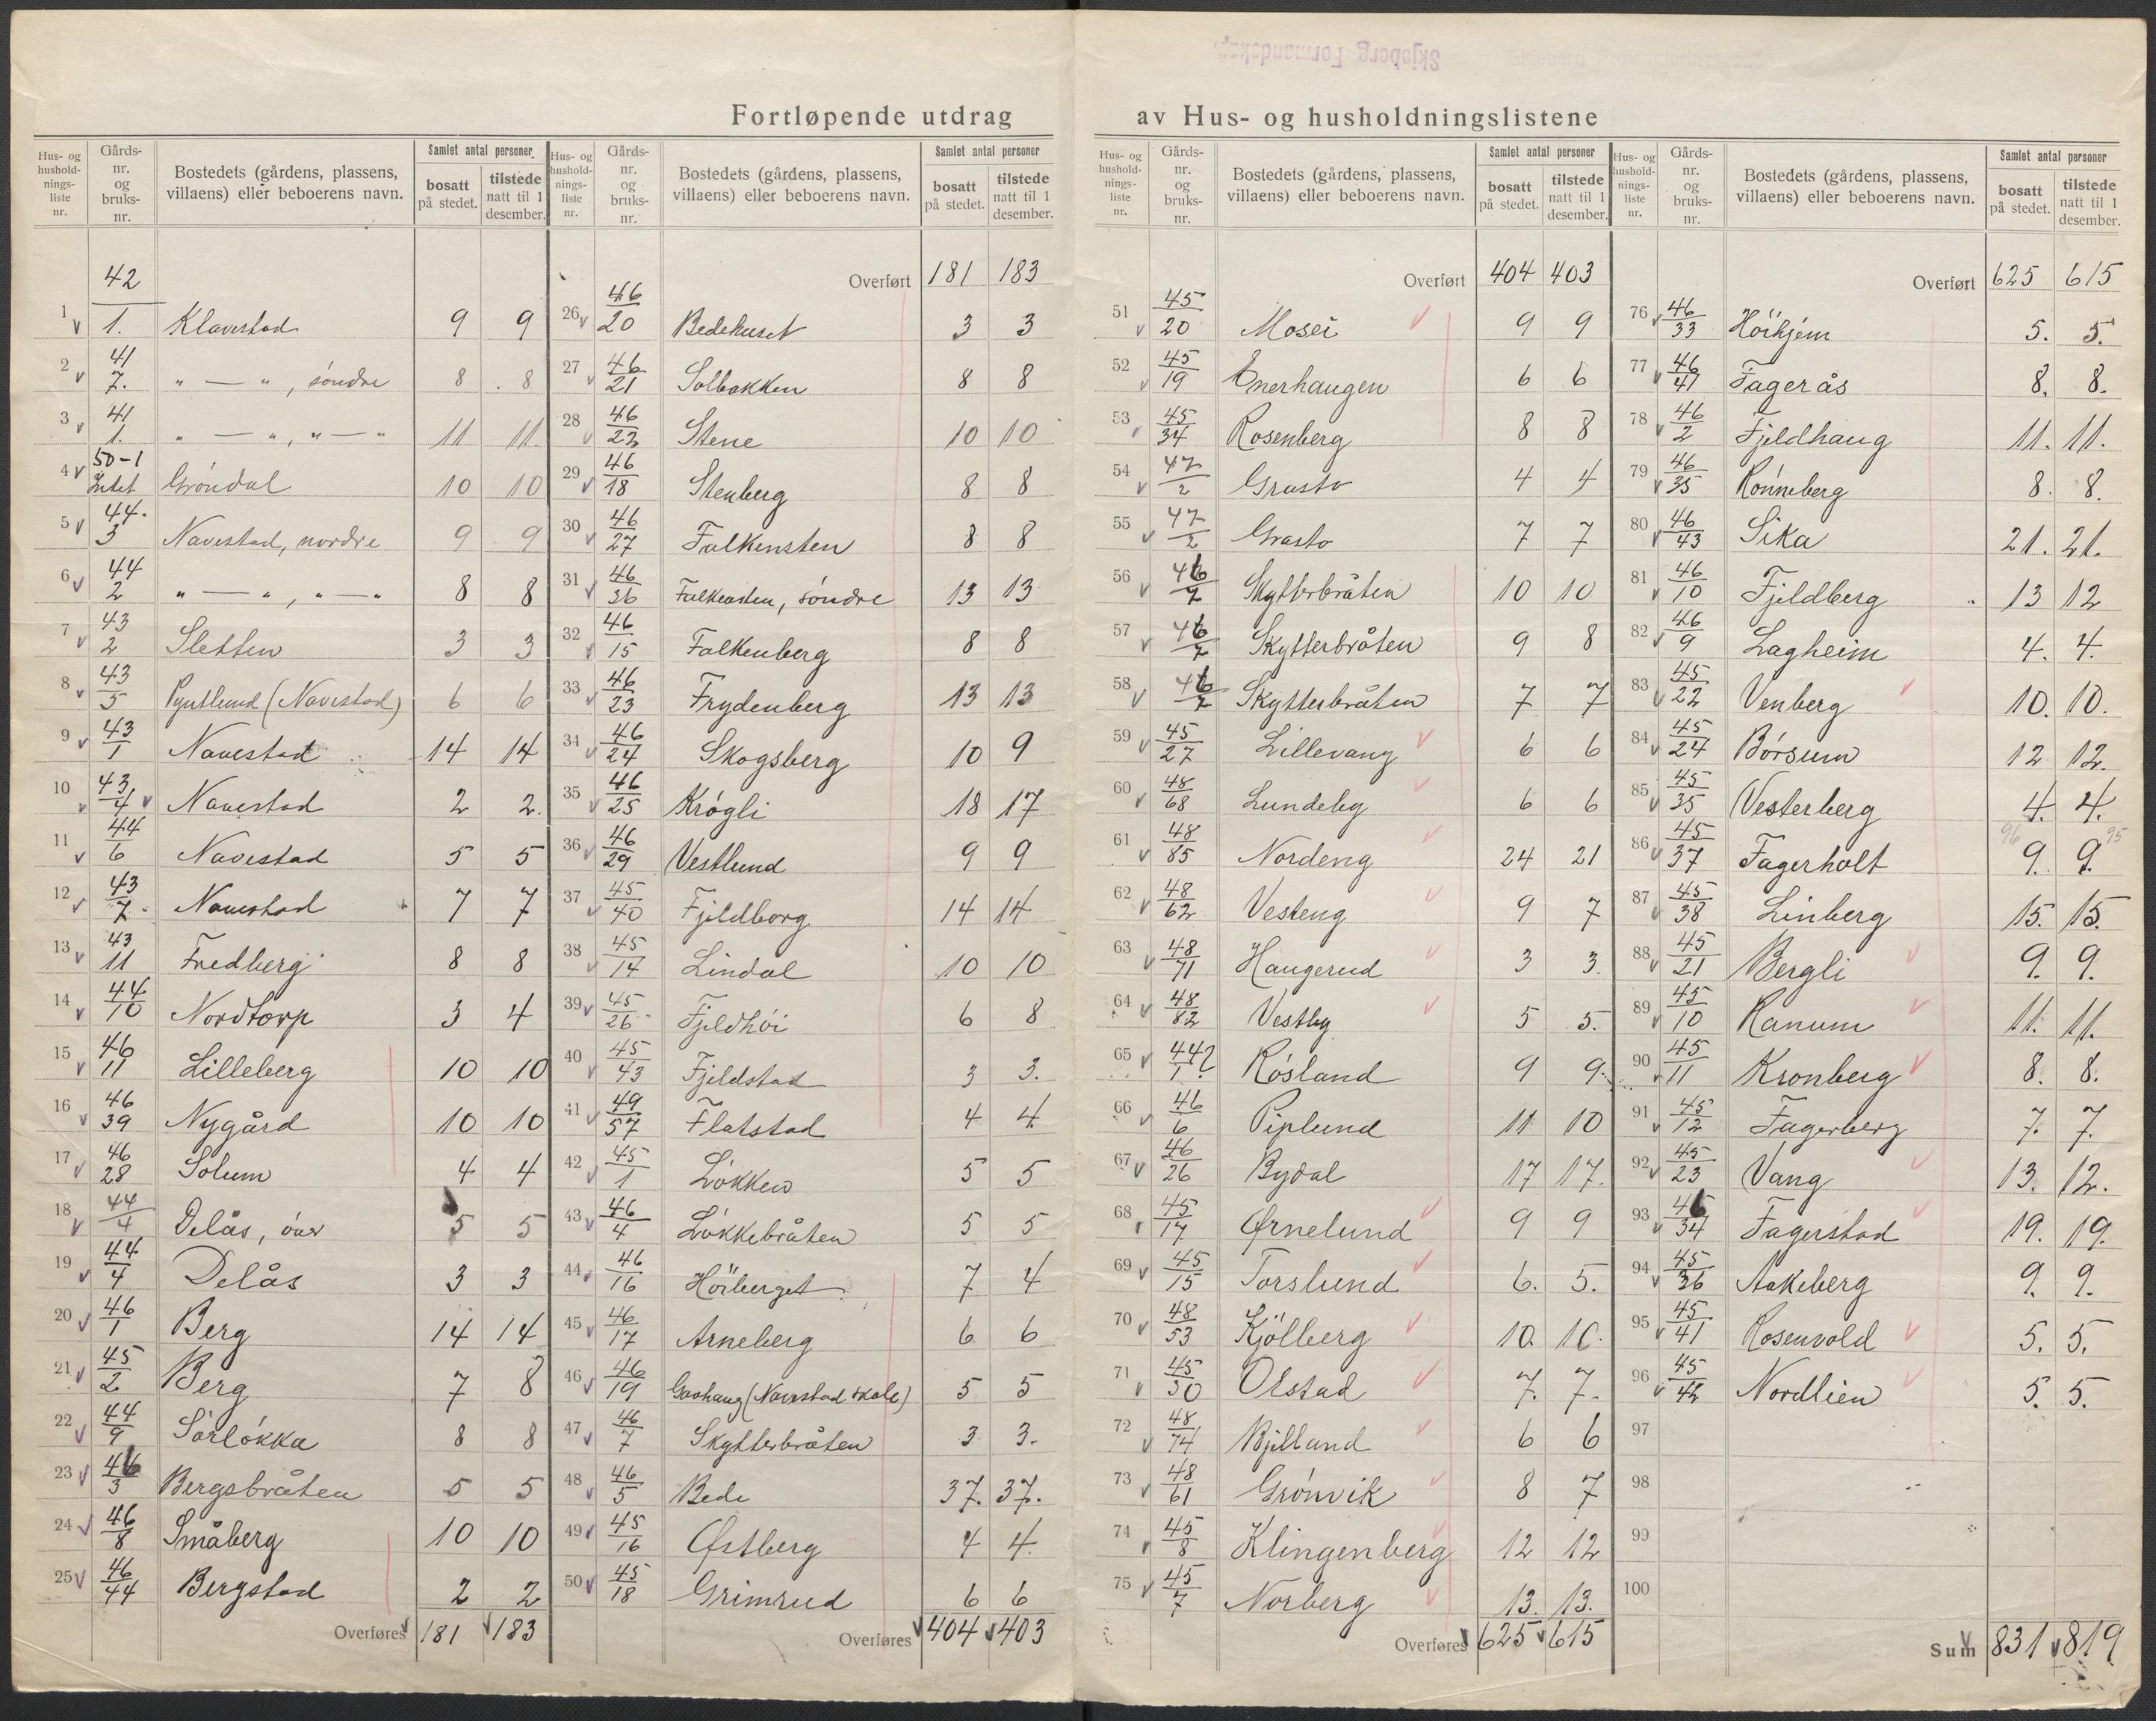 Skjeberg Formandskap.
Fortløpende utdrag av Hus- og husholdningslistene
Hus- og husholdningsliste nr. | Gårdsnr. og bruksnr. | Bostedets (gårdens, plassens, villaens) eller beboerens navn. | Samlet antal personer bosatt på stedet. | tilstede natt til 1 desember.
1 42/1. Klavestad 9 9
2 41/7. " — " , söndre 8 8
3 41/1. " — " , " — " 11 11
4 50-1 Gröndal 10 10
5 44/3 Navestad, nordre 9 9
6 44/2 " — " , " — " 8 8
7 43/2 Sletten 3 3
8 43/5 Pyntlund (Navestad) 6 6
9 43/1 Navestad 14 14
10 43/4 Navestad 2 2.
11 44/6 Navestad 5 5
12 43/7 Navestad 7 7
13 43/11 Fredberg 8 8
14 44/10 Nordtorp 3 4
15 46/11 Lilleberg 10 10
16 46/39 Nygård 10 10
17 46/28 Solum 4 4
18 44/4 Delås, övr 5 5
19 44/4 Delås 3 3
20 46/1 Berg 14 14
21 45/2 Berg 7 8
22 44/9 Sörlökka 8 8
23 46/3 Bergsbråten 5 5
24 46/8 Småberg 10 10
25 46/44 Bergstad 2 2
Overføres 181 183
Hus- og husholdningsliste nr. | Gårdsnr. og bruksnr. | Bostedets (gårdens, plassens, villaens) eller beboerens navn. | Samlet antal personer bosatt på stedet. | tilstede natt til 1 desember.
Overført 181 183
26 46/20 Bedehuset 3 3
27 46/21 Solbakken 8 8
28 46/22 Stene 10 10
29 46/18 Stenberg 8 8
30 46/27 Falkensten 8 8
31 46/36 Falkensten, söndre 13 13
32 46/15 Falkenberg 8 8
33 46/23 Frydenberg 13 13
34 46/24 Skogsberg 10 9
35 46/25 Krögli 18 17
36 46/29 Vestlund 9 9
37 45/40 Fjeldborg 14 14
38 45/14 Lindal 10 10
39 45/26 Fjeldhöi 6 8
40 45/43 Fjeldstad 3 3.
41 49/57 Flatstad 4 4.
42 45/1 Lökken 5 5
43 46/4 Lökkebråten 5 5
44 46/16 Höiberget 7 4
45 46/17 Arneberg 6 6
46 46/19 Gaahaug (Navestad skole) 5 5
47 46/7 Skytterbråten 3 3.
48 46/5 Bede 37. 37.
49 45/16 Østberg 4 4.
50 45/18 Grimsrud 6 6
Overføres 404 403
Hus- og husholdningsliste nr. | Gårdsnr. og bruksnr. | Bostedets (gårdens, plassens, villaens) eller beboerens navn. | Samlet antal personer bosatt på stedet. | tilstede natt til 1 desember.
Overført 404 403
51 45/20 Mosei 9 9
52 45/19 Enerhaugen 6 6
53 45/34 Rosenberg 8 8
54 47/2 Grasto 4 4
55 47/2 Grasto 7 7
56 46/7 Skytterbråten 10 10
57 46/7 Skytterbråten 9 8
58 46/7 Skytterbråten 7 7
59 45/27 Lillevang 6 6
60 48/68 Lundeby 6 6
61 48/85 Nordeng 24 21
62 48/62 Vesteng 9 7
63 48/71 Haugerud 3 3.
64 48/82 Vestby 5 5.
65 44/1? Rösland 9 9
66 46/6 Piplund 11 10
67 46/26 Bydal 17 17.
68 45/17 Ørnelund 9 9
69 45/15 Torslund 6. 5.
70 48/53 Kjölberg 10. 10.
71 45/30 Olstad 7. 7.
72 48/74 Bjelland 6 6
73 48/61 Grönvik 8 7
74 45/8 Klingenberg 12 12
75 45/7 Norberg 13. 13.
Overføres 625 615
Hus- og husholdningsliste nr. | Gårdsnr. og bruksnr. | Bostedets (gårdens, plassens, villaens) eller beboerens navn. | Samlet antal personer bosatt på stedet. | tilstede natt til 1 desember.
Overført 625 615
76 46/33 Höihjem 5. 5.
77 46/41 Fagerås 8. 8.
78 46/2 Fjeldhaug 11. 11.
79 46/35 Rönneberg 8. 8.
80 46/43 Sika 21. 21.
81 46/10 Fjeldberg 13 12
82 46/9 Lagheim 4. 4.
83 45/22 Venberg 10. 10.
84 45/24 Börsum 12 12.
85 45/35 Vesterberg 4. 4.
96 95
86 45/37 Fagerholt 9. 9.
87 45/38 Linberg 15. 15.
88 45/21 Bergli 9. 9.
89 45/10 Ranum 11. 11.
90 45/11 Kronberg 8. 8.
91 45/12 Fagerberg 7. 7.
92 45/23 Vang 13. 12.
93 46/34 Fagerstad 19. 19.
94 45/36 Aakeberg 9. 9.
95 45/41 Rosenvold 5. 5.
96 45/42 Nordlien 5. 5.
97
98
99
100
Sum 831 819